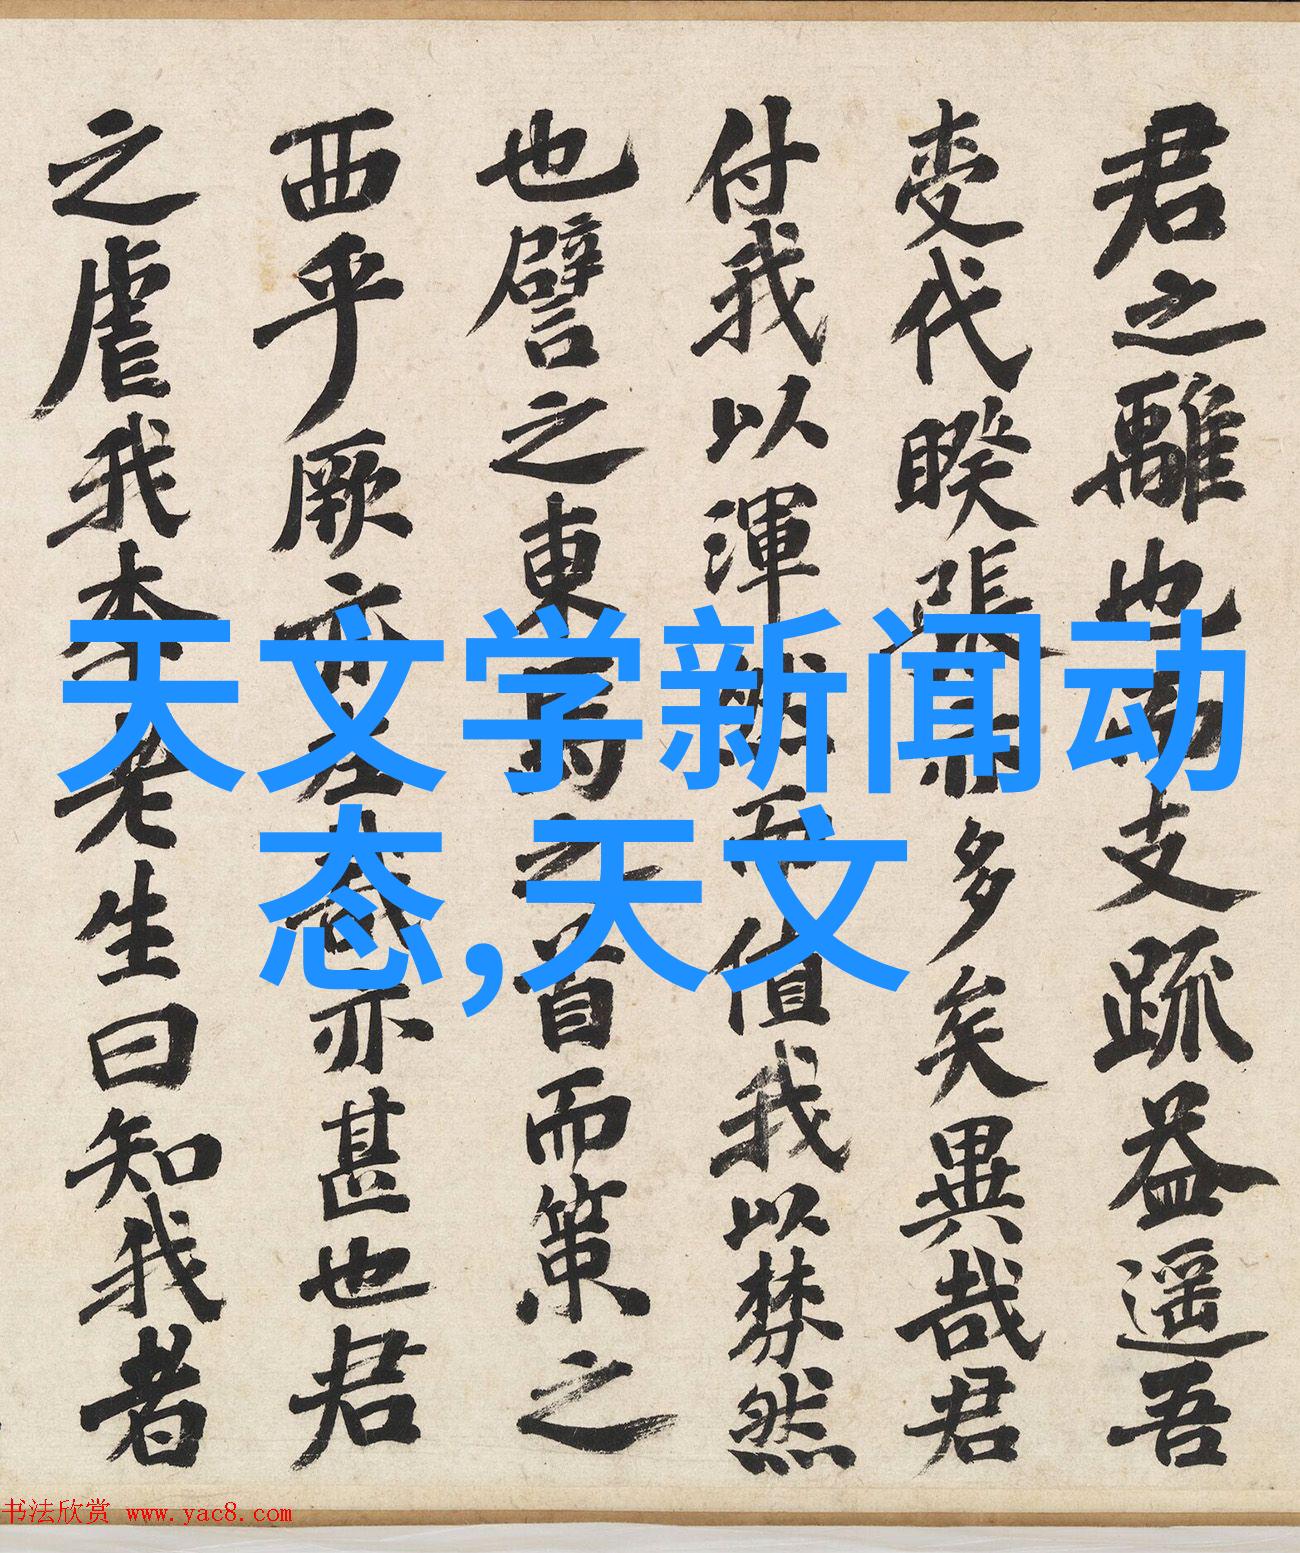 君之離也而支疏益遥吾
代睽張亦多矣異哉君
付我以渾然而值我以棼然
也譬之東馬之首而策之
西乎厥亦左亦甚也君
之虐我李老生曰知我者
天文学新闻动
态,天文
书法欣赏 www.yac8.com